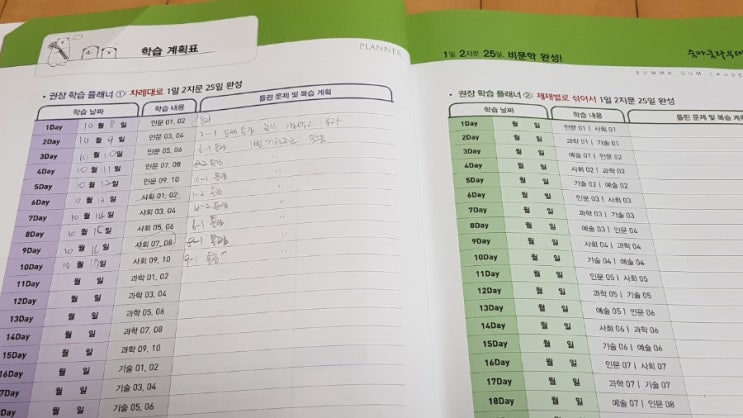 학습 계획표
PLANNER
• 권장 학습 플래너 ①: 차례대로 1일 2지문 25일 완성
학습 날짜 학습 내용 틀린 문제 및 복습 계획
1Day 10 월 8 일 인문 01, 02 통과
2Day 10 월 9 일 인문 03, 04
3Day 10 월 10 일 인문 05, 06
4Day 10 월 11 일 인문 07, 08
5Day 10 월 12 일 인문 09, 10
6Day 10 월 13 일 사회 01, 02
7Day 10 월 14 일 사회 03, 04
8Day 10 월 15 일 사회 05, 06
9Day 10 월 16 일 사회 07, 08
10Day 10 월 17 일 사회 09, 10
11Day 월 일 과학 01, 02
12Day 월 일 과학 03, 04
13Day 월 일 과학 05, 06
14Day 월 일 과학 07, 08
15Day 월 일 과학 09, 10
16Day 월 일 기술 01, 02
17Day 월 일 기술 03, 04
월 일 기술 05, 06
1일 2지문 25일, 비문학 완성!
숨마쿰라우데
SUMMA CUM LAUDE
• 권장 학습 플래너 ②: 제재별로 섞어서 1일 2지문 25일 완성
학습 날짜 학습 내용 틀린 문제 및 복습 계획
1Day 월 일 인문 01 | 사회 01
2Day 월 일 과학 01 | 기술 01
3Day 월 일 예술 01 | 인문 02
4Day 월 일 사회 02 | 과학 02
5Day 월 일 기술 02 | 예술 02
6Day 월 일 인문 03 | 사회 03
7Day 월 일 과학 03 | 기술 03
8Day 월 일 예술 03 | 인문 04
9Day 월 일 사회 04 | 과학 04
10Day 월 일 기술 04 | 예술 04
11Day 월 일 인문 05 | 사회 05
12Day 월 일 과학 05 | 기술 05
13Day 월 일 예술 05 | 인문 06
14Day 월 일 사회 06 | 과학 06
15Day 월 일 기술 06 | 예술 06
16Day 월 일 인문 07 | 사회 07
17Day 월 일 과학 07 | 기술 07
18Day 월 일 예술 07 | 인문 08